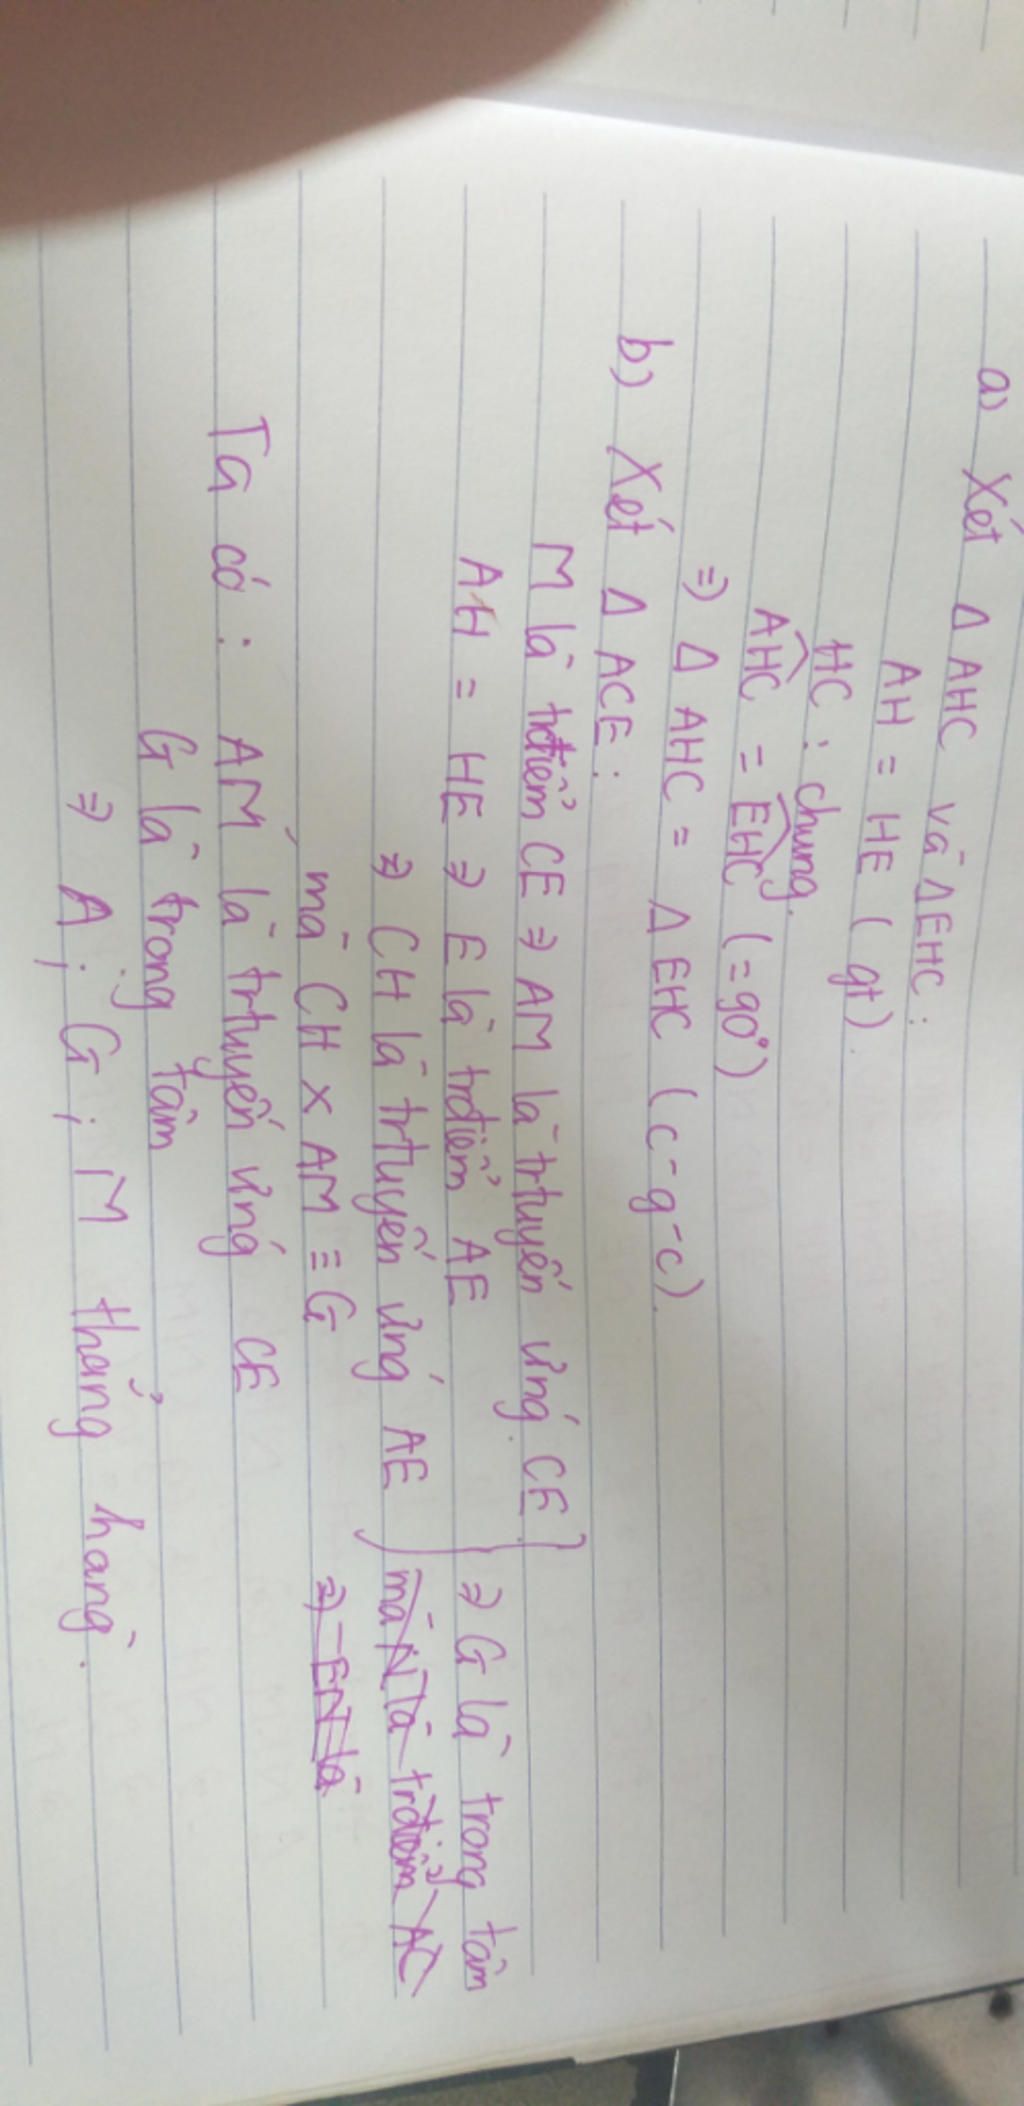 a) Xét Δ AHC và Δ EHC:
AH = HE (gt).
HC: chung.
AHC = EHC (=90°)
⇒ Δ AHC = Δ EHC (c-g-c).
b) Xét Δ ACE:
M là trđiểm CE ⇒ AM là trtuyến ứng CE
AH = HE ⇒ E là trđiểm AE ⇒ G là trọng tâm
⇒ CH là trtuyến ứng AE mà N là trđiểm AC
mà CH x AM ≡ G ⇒ EN là
Ta có: AM là trtuyến ứng CE
G là trọng tâm
⇒ A; G; M thẳng hàng.